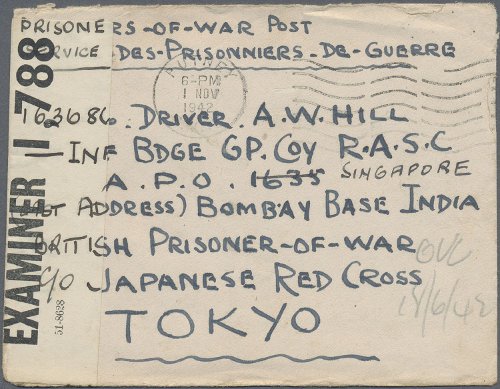 PRISONERS-OF-WAR POST
SERVICE DES-PRISONNIERS-DE-GUERRE
PUTNEY
6-PM
1 NOV
1942
163686. DRIVER. A.W. HILL
INF BDGE GP. COY R.A.S.C
A.P.O. 1635 SINGAPORE
ADDRESS) BOMBAY BASE INDIA
BRITISH PRISONER-OF-WAR
C/O JAPANESE RED CROSS
TOKYO
EXAMINER 1.788
51-8628